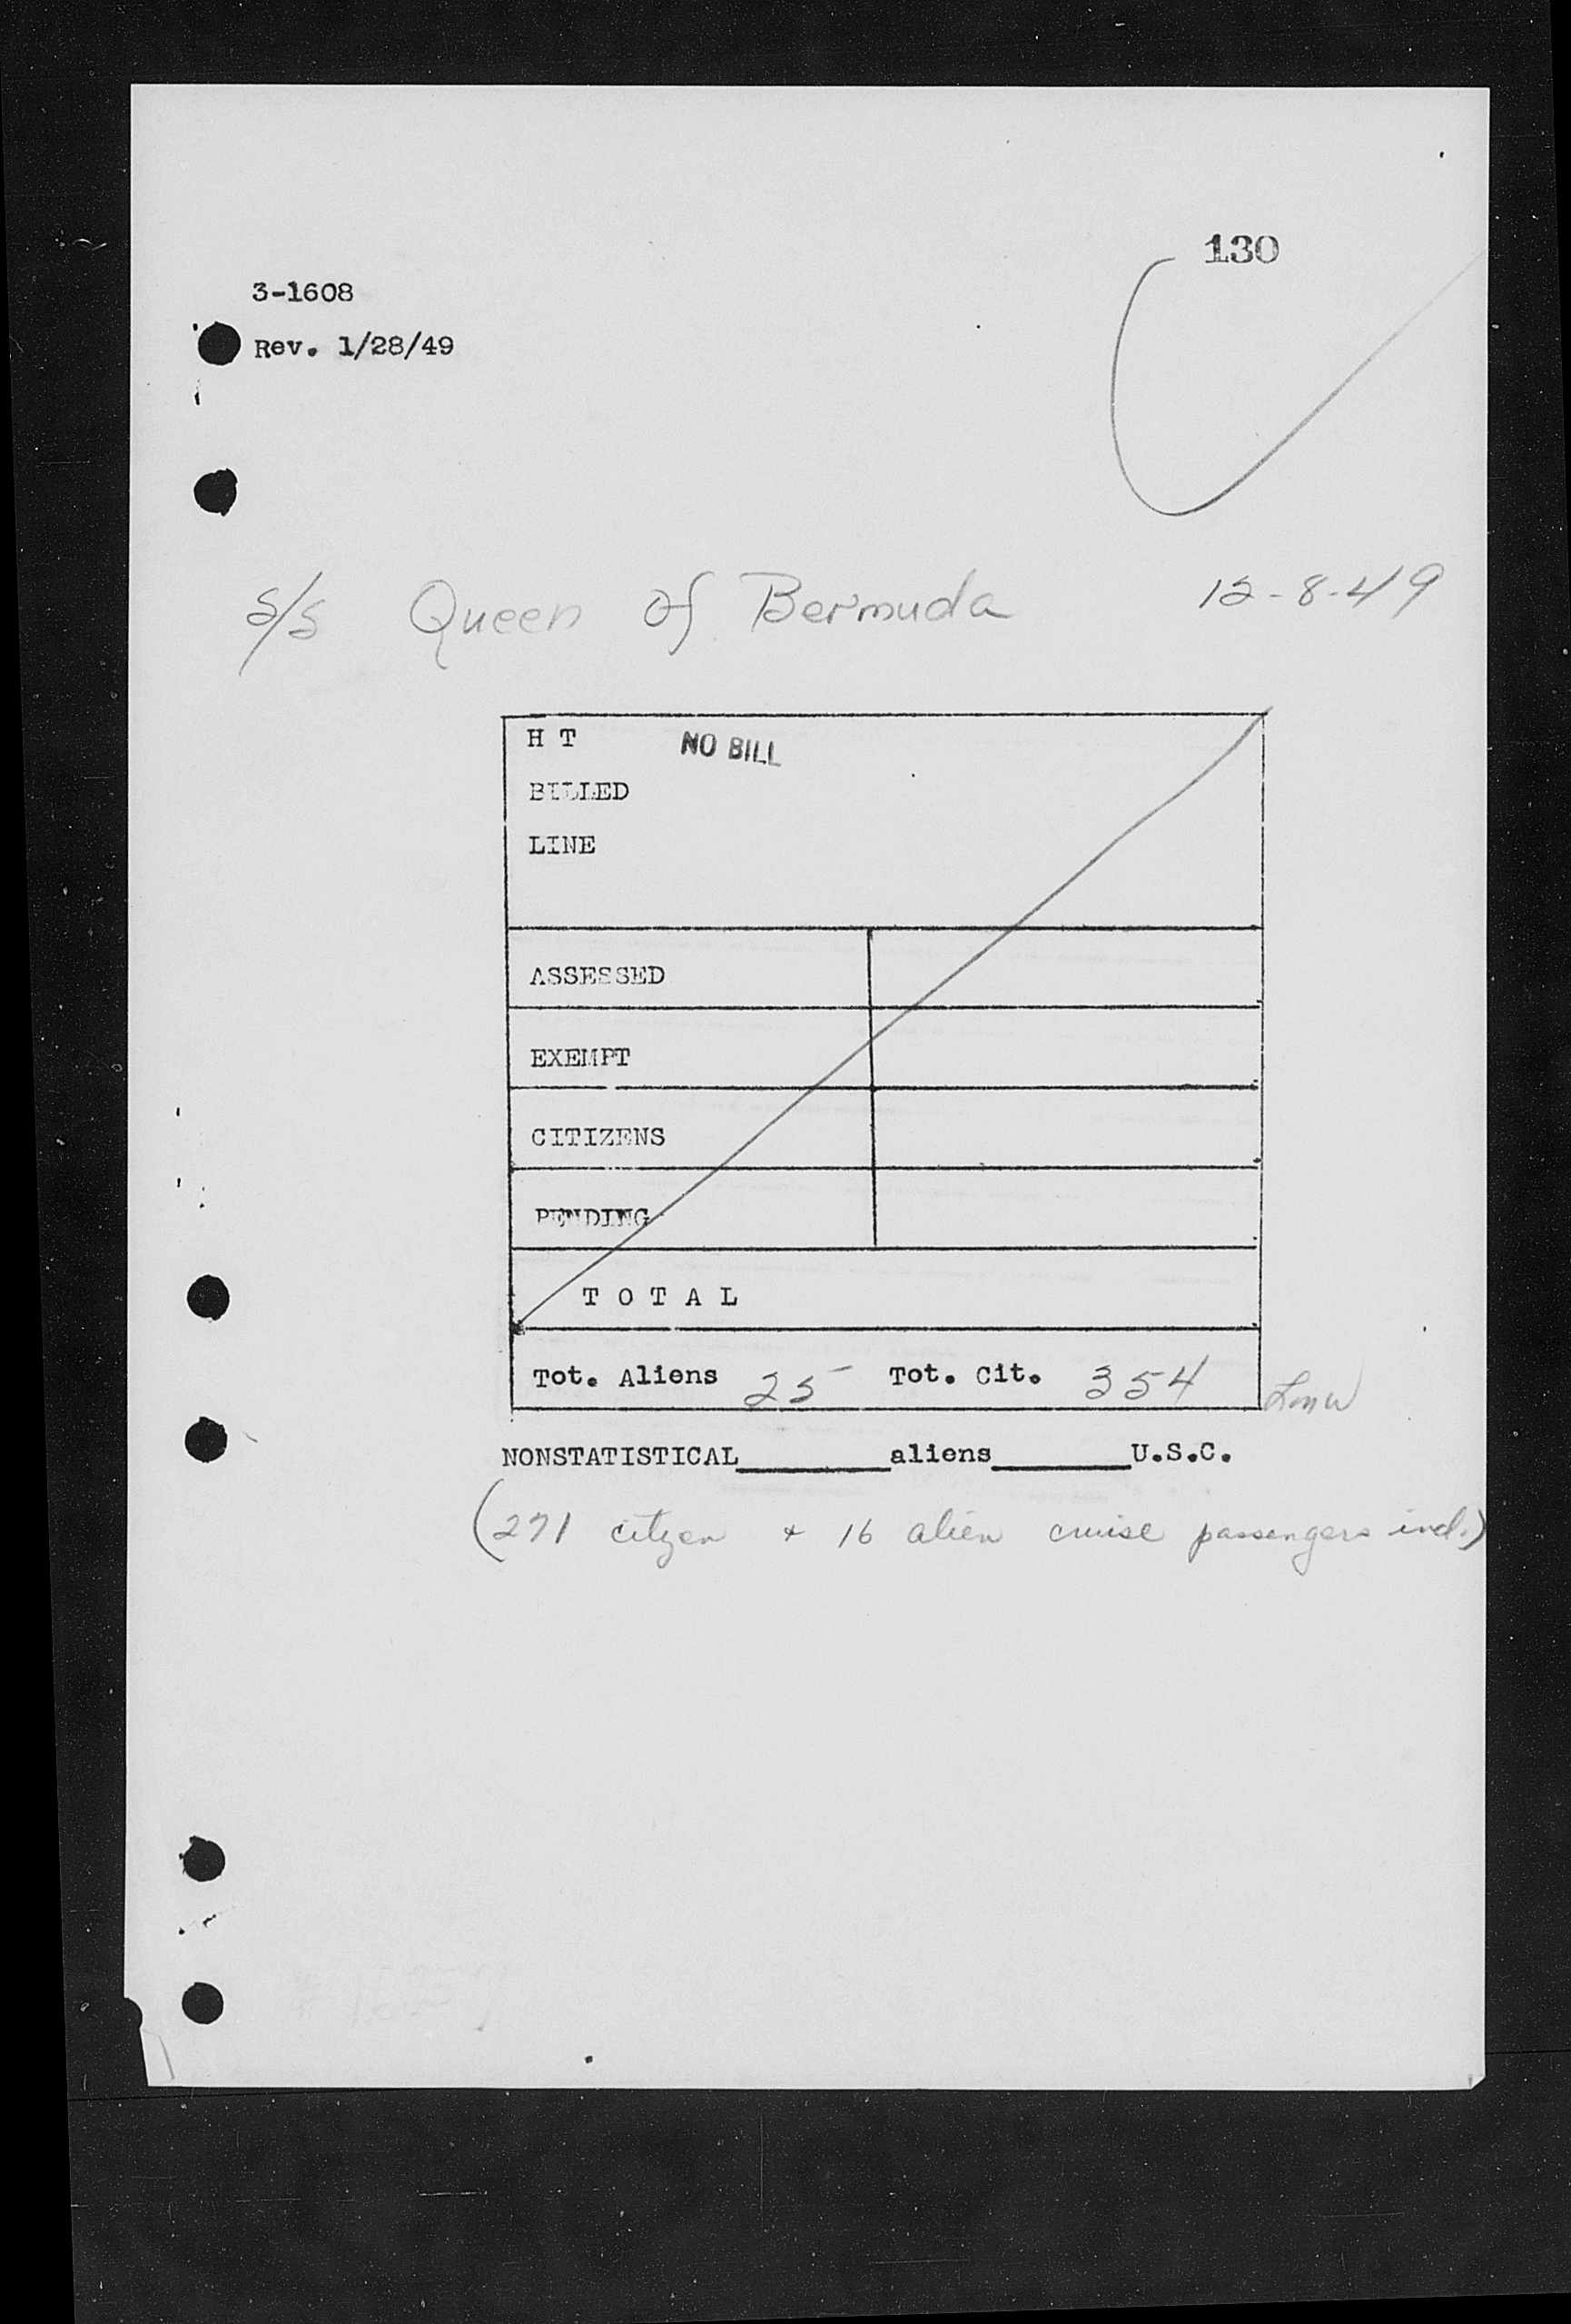 130
3-1608
Rev. 1/28/49
S/S Queen of Bermuda 12-8-49
H T NO BILL
BILLED
LINE
ASSESSED
EXEMPT
CITIZENS
PENDING
T O T A L
Tot. Aliens 25 Tot. Cit. 354 Lmw
NONSTATISTICAL________aliens________U.S.C.
(271 citizen + 16 alien cruise passengers incl.)